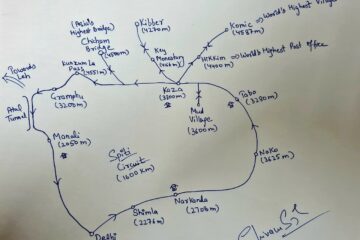 (Asia's
Highest Bridge)
Chicham
Bridge
Kibber
(4270m)
Key
Monastery
Komic => World's Highest Village
(4587m)
Hikkim => World's Highest Post office
(4400m)
Kunzum La
Pass
(4551m)
Towards
Leh
Gramphu
(3200m)
Atal
Tunnel
Manali
(2050m)
Kaza
(3800m)
Mud
Village
(3600m)
Tabo
(3280m)
Spiti
Circuit
(1600km)
Nako
(3625m)
Narkanda
(2708m)
Shimla
(2276m)
Delhi